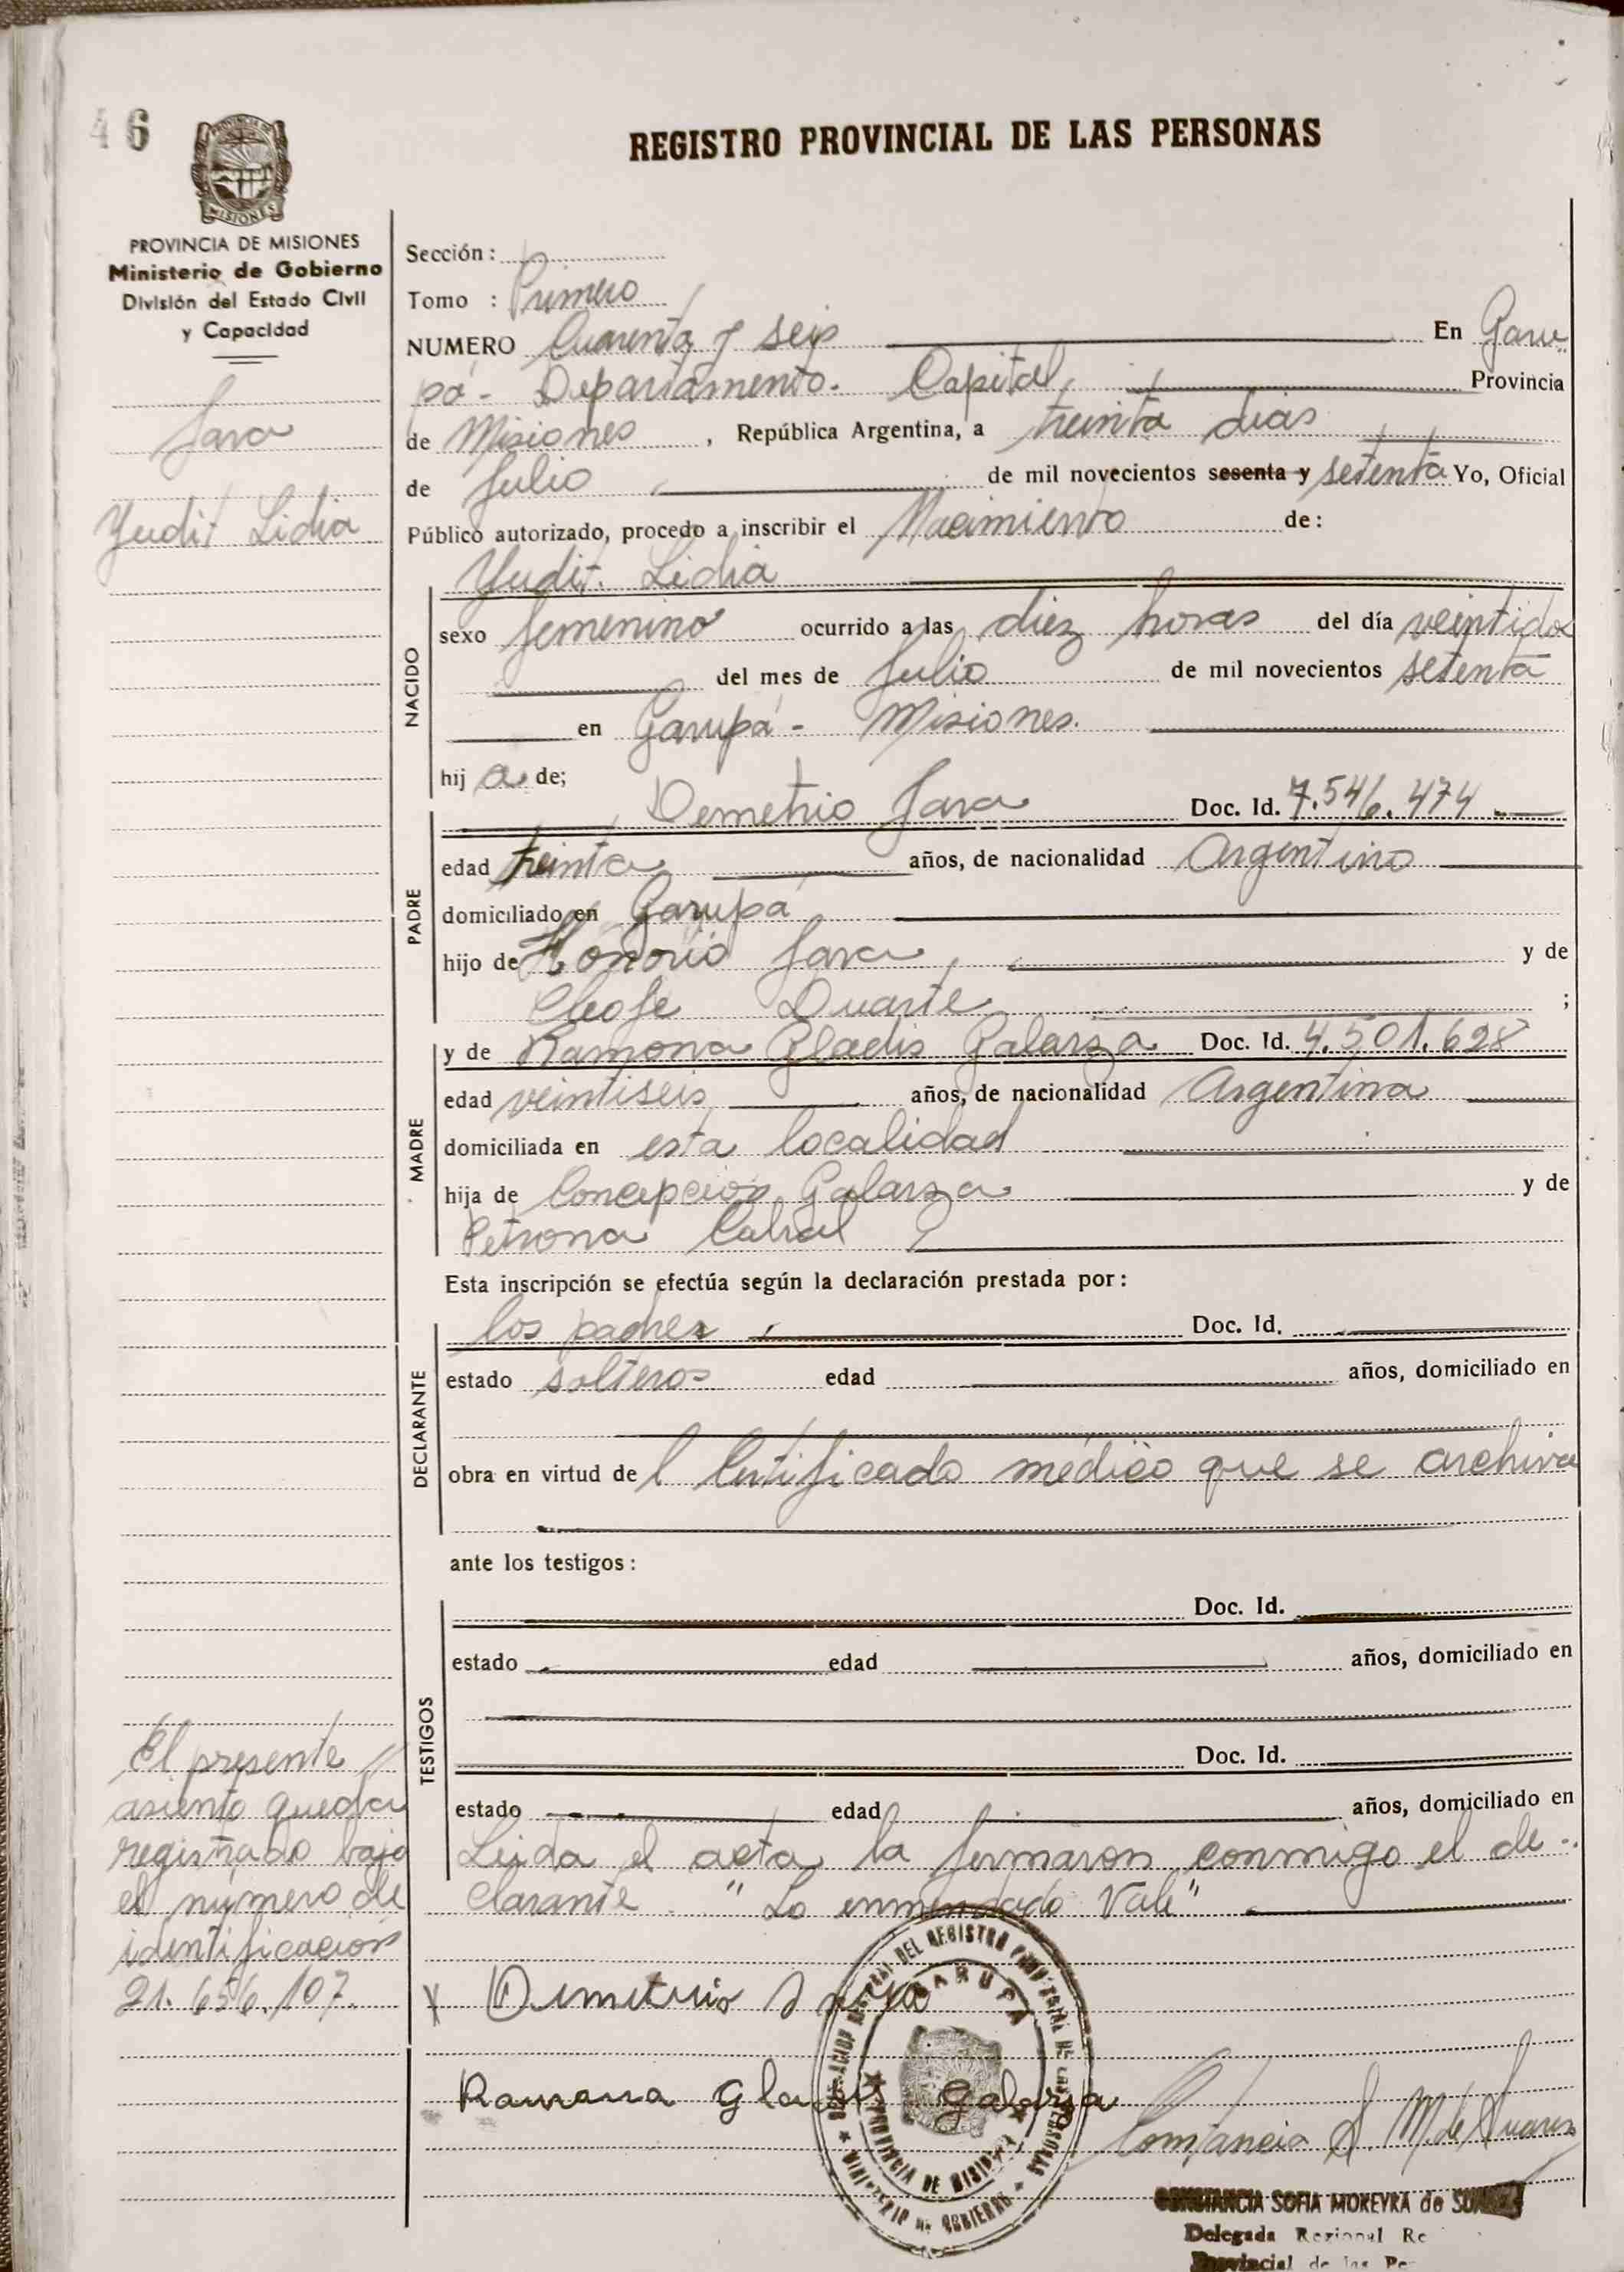 46
REGISTRO PROVINCIAL DE LAS PERSONAS
MISIONES
PROVINCIA DE MISIONES
Ministerio de Gobierno
División del Estado Civil
y Capacidad
Jara
Yudit Lidia
Sección:
Tomo : Primero
NUMERO Cuarenta y seis En Garu
pá - Departamento - Capital, Provincia
de Misiones, República Argentina, a treinta dias
de Julio de mil novecientos sesenta y setenta Yo, Oficial
Público autorizado, procedo a inscribir el Nacimiento de:
Yudit Lidia
NACIDO
sexo femenino ocurrido a las diez horas del día veintidos
del mes de Julio de mil novecientos setenta
en Garupá - Misiones.
hij a de;
PADRE
Demetrio Jara Doc. Id. 7.546.474
edad treinta años, de nacionalidad Argentino
domiciliado en Garupá
hijo de Honorio Jara, y de
Cleofe Duarte ;
MADRE
y de Ramona Gladis Galarza Doc. Id. 4.501.628
edad veintiseis años, de nacionalidad Argentina
domiciliada en esta localidad
hija de Concepcion Galarza y de
Petrona Cabral
Esta inscripción se efectúa según la declaración prestada por:
DECLARANTE
los padres Doc. Id.
estado solteros edad años, domiciliado en
obra en virtud de l Certificado médico que se archiva
ante los testigos:
TESTIGOS
Doc. Id.
estado edad años, domiciliado en
Doc. Id.
estado edad años, domiciliado en
Leida el acta, la firmaron conmigo el de-
clarante. "Lo enmendado Vale"
El presente
asiento queda
registrado bajo
el número de
identificacion
21.656.107.
X Demetrio Jara
Ramona Gladis Galarza
GARUPA
PROVINCIA DE MISIONES
MINISTERIO DE GOBIERNO
Constancia S. M. de Suarez
CONSTANCIA SOFIA MOREYRA de SUAREZ
Delegada Regional Re
Provincial de las Pe